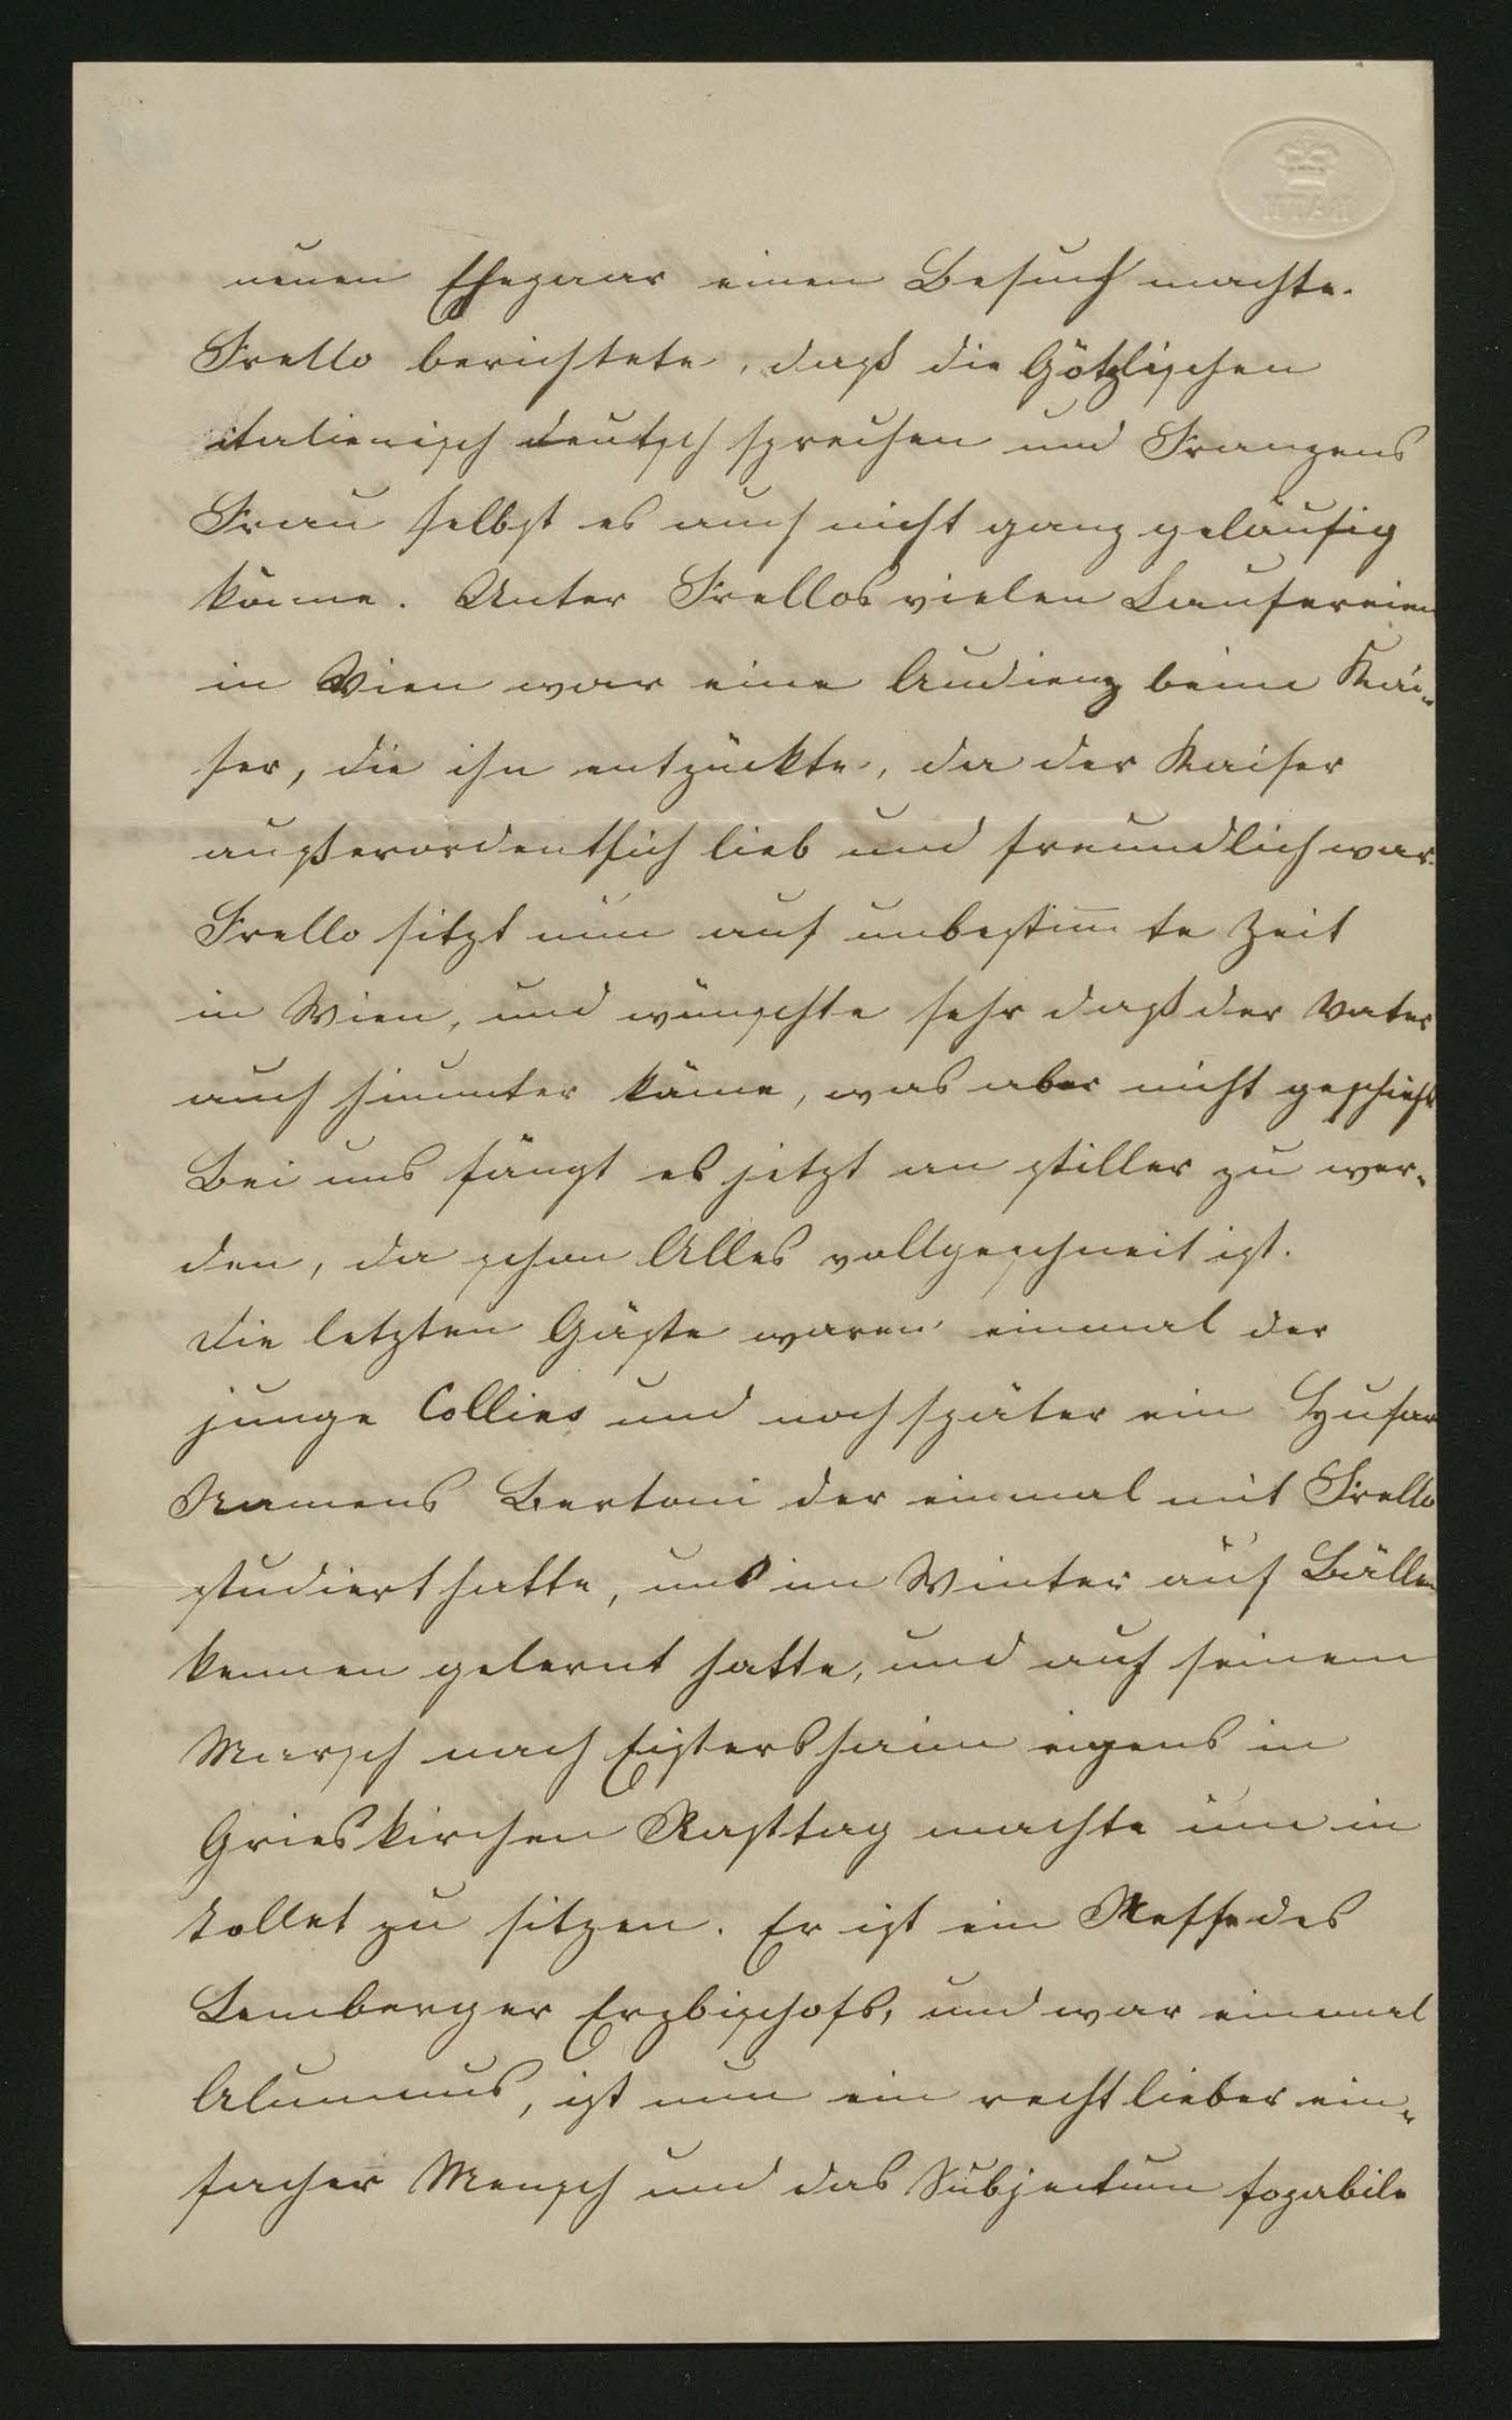 BATH
neuen Ehepaar einen Besuch machte.
Frello berichtete, daß die Götzlischen
italienisch deutsch sprechen und Franzens
Frau selbst es auch nicht ganz geläufig
könne. Unter Frellos vielen Laufereien
in Wien war eine Audienz beim Kai-
ser, die ihn entzückte, da der Kaiser
außerordentlich lieb und freundlich war.
Frello sitzt nun auf unbestim̄te Zeit
in Wien, und wünschte sehr daß der Vater
auch hinunter käme, was aber nicht geschieht
Bei uns fängt es jetzt an stiller zu wer-
den, da schon Alles vollgeschneit ist.
Die letzten Gäste waren einmal der
junge Collins und noch später ein Husar
Namens Bertoni der einmal mit Frello
studiert hatte, uns im Winter auf Bällen
kennen gelernt hatte, und auf seinem
Marsch nach Eistersheim eigens in
Grieskirchen Rasttag machte um in
Tollet zu sitzen. Er ist ein Neffe des
Lemberger Erzbischofs, und war einmal
Alumnus, ist nun ein recht lieber ein-
facher Mensch und das Subjectum